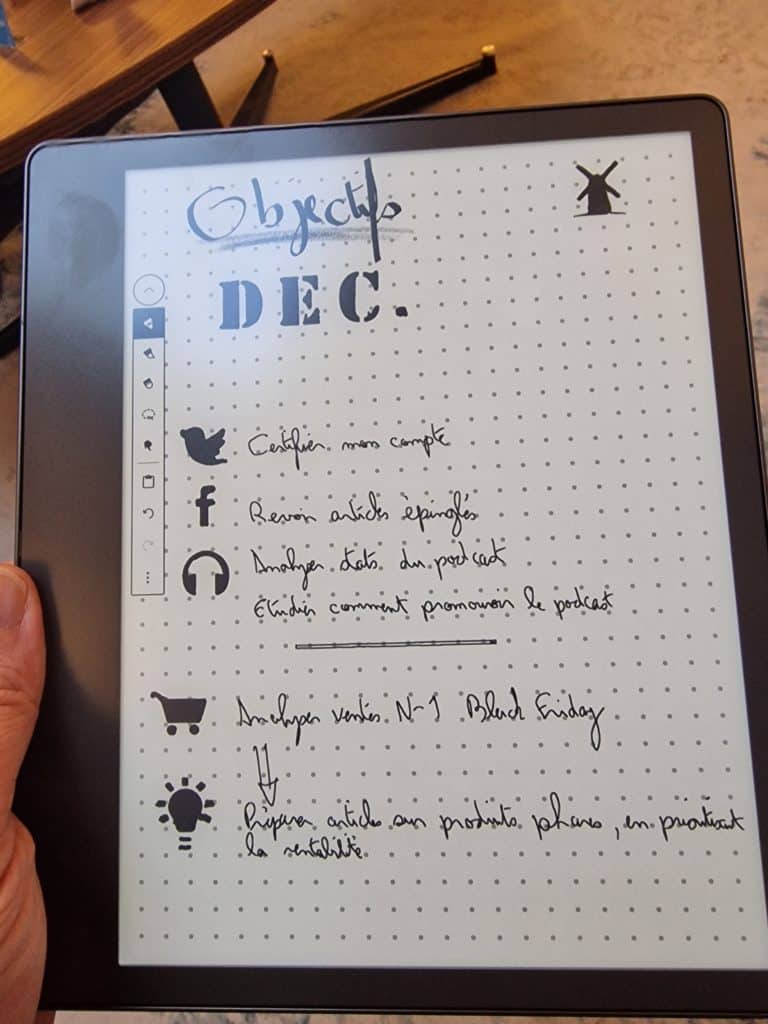 Objectifs
DEC.
Certifier mon compte
Revoir articles épinglés
Analyser stats du podcast
Etudier comment promouvoir le podcast
Analyser ventes N-1 Black Friday
Préparer articles sur produits phares, en priorisant
la rentabilité